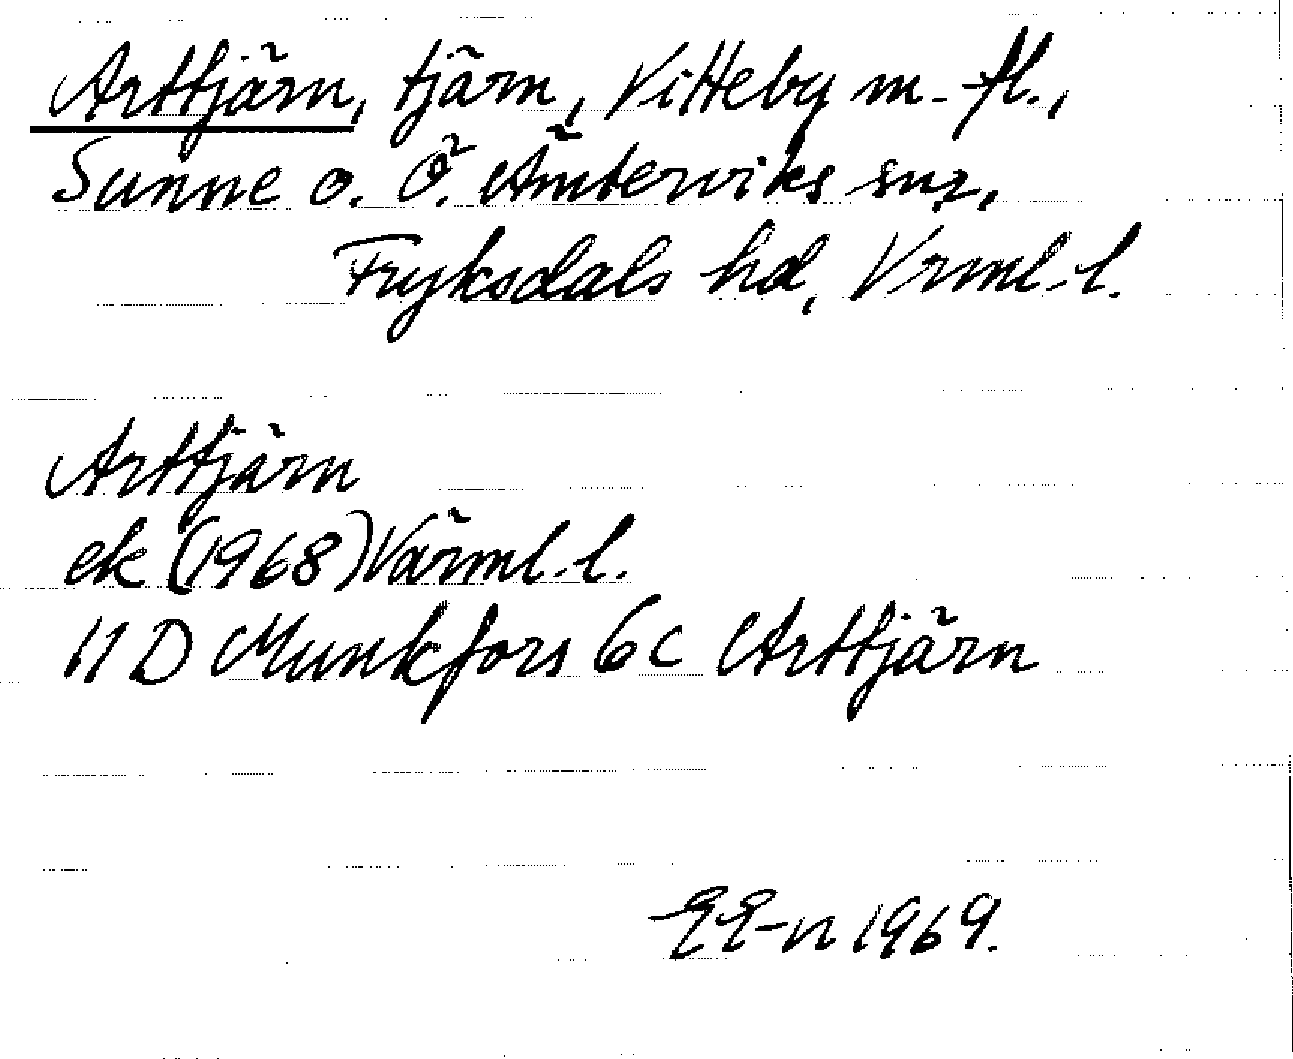 Arttjärn, tjärn, Vitteby m. fl.,
Sunne o. Ö. Ämterviks snr,
Fryksdals hd, Vrml. l.
Arttjärn
ek (1968) Värml. l.
11 D Munkfors 6c Arttjärn
EE-n 1969.